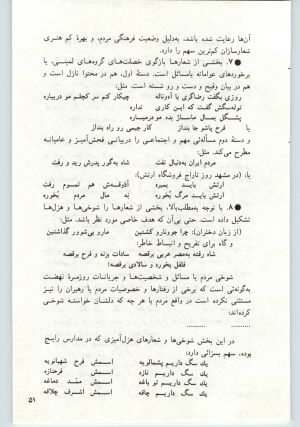 آن‌ها رعایت شده باشد، به‌دلیل وضعیت فرهنگی مردم، و بهرهٔ کم هنری
شعارسازان کم‌ترین سهم را دارد.
●۷. بخشی از شعارها بازگوی خصلت‌های گروه‌های لمپنی، یا
برخوردهای عوامانه بامسائل است. دستهٔ اول، هم در محتوا نازل است و
هم در بیان وقیح و دست و رو شسته است. مثل:
روزی بگفت رضاگری با آونتانه چیکار کنم سر کچلم مو دربیاره
توله‌سگش گفت که این کاری نداره
پشگل بمال ماساژ بده مودرمیاره
یا فرح پاشو جا بنداز کار جیمی رو راه بنداز
و دستهٔ دوم مسأله‌ئی مهم و اجتماعی را دربیانی فحش‌آمیز و عامیانه
مطرح می‌کند. مثل:
مردم ایران به‌دنبال نفت شاه به‌گور پدرش رید و رفت
یا (در مشهد روز تاراج فروشگاه ارتش):
ارتش باید بمیره آذوقه‌ش هم تموم رفت
ارتش باید مرگ بخوره نه مال مردم بخوره
●۸. با توجه به‌مطلب‌بالا، بخشی از شعارها را شوخی‌ها و هزل‌ها
تشکیل داده است. حتی بی‌آن که هدفی خاص مورد نظر باشد. مثل:
(از زبان دختران): چرا جوونارو کشتین مارو بی‌شوور گذاشتین
و گاه برای تفریح و انبساط خاطر:
شاه رفته به‌مصر عربی برقصه سادات بزنه و فرح برقصه
فلفل بخوره و سالادی برقصه!
شوخی مردم با مسائل و شخصیت‌ها و جریانات روزمرهٔ نهضت
به‌گونه‌ئی است که برخی از رفتارها و خصوصیات مردم یا رهبران را نیز
مستثنی نکرده است در واقع مردم با هر چه که دلشان خواسته شوخی
کرده‌اند:
.......... ..........
در این بخش شوخی‌ها و شعارهای هزل‌آمیزی که در مدارس رایج
بوده، سهم بسزائی دارد:
یك سگ داریم پشمالویه اسمش فرح شهبانویه
یك سگ داریم نازه اسمش فرحنازه
یك سگ داریم تو باغه اسمش ممد دماغه
یك سگ داریم چاقه اسمش اشرف چلاقه
۵۱